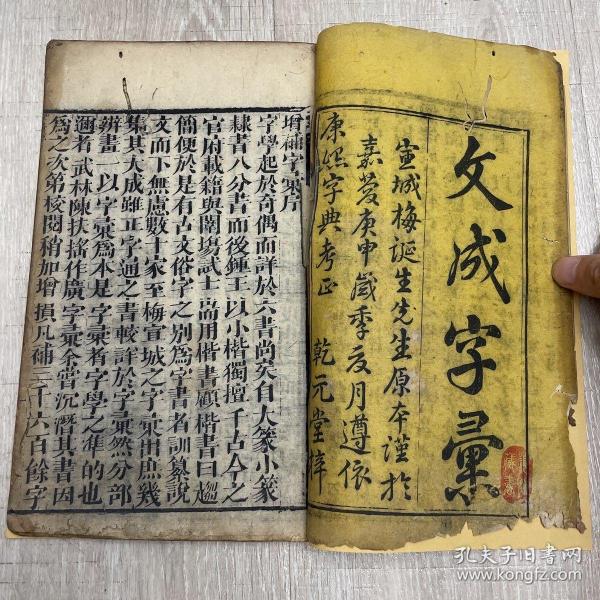 文成字彙
宣城梅誕生先生原本謹於
嘉慶庚申歲季夏月遵依
康熙字典考正　乾元堂梓
增補字彙序
字學起於奇偶而詳於六書尚矣自大篆小篆
隸書八分書而後鍾王以小楷獨擅千古今之
官府載籍與闈場試士耑用楷書顧楷書曰趨
簡便於是有古文俗字之別為字書者訓纂說
文而下無慮數十家至梅宣城之字彙出庶幾
集其大成雖正字通之書較詳於字彙然分部
辨畫一以字彙為本是字彙者字學之準的也
邇者武林陳扶搖作廣字彙余嘗沉溉其書因
為之次第校閱稍加增損凡補三千六百餘字
孔夫子旧书网
www.kongfz.com